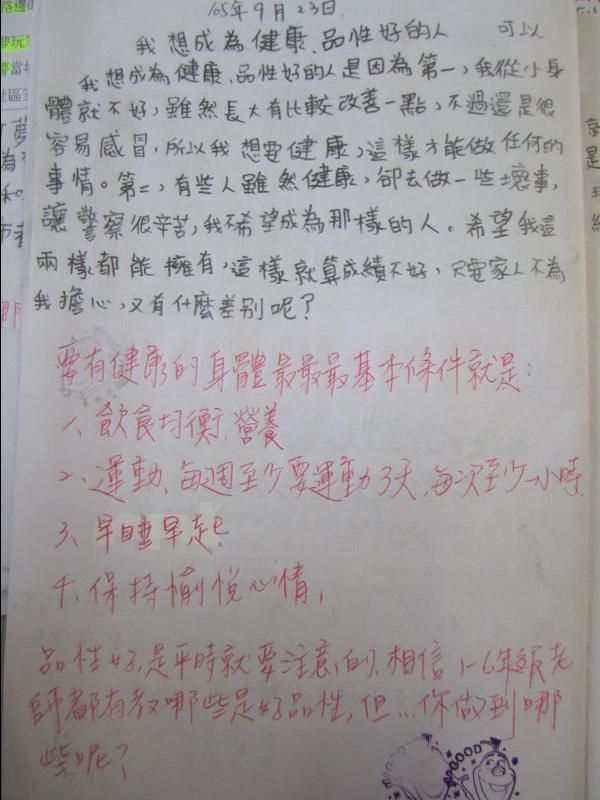 105年9月23日
我想成為健康、品性好的人 可以
我想成為健康、品性好的人是因為第一,我從小身
體就不好,雖然長大有比較改善一點,不過還是很
容易感冒,所以我想要健康,這樣才能做任何的
事情。第二,有些人雖然健康,卻去做一些壞事,
讓警察很辛苦,我不希望成為那樣的人。希望我這
兩樣都能擁有,這樣就算成績不好,只要家人不為
我擔心,又有什麼差別呢?
要有健康的身體最最最基本條件就是:
1、飲食均衡、營養
2、運動、每週至少要運動3天,每次至少一小時
3、早睡早起!
4、保持愉悅心情,
品性好,是平時就要注意的,相信1~6年級老
師都有教哪些是好品性,但…你做到哪
些呢?
GOOD